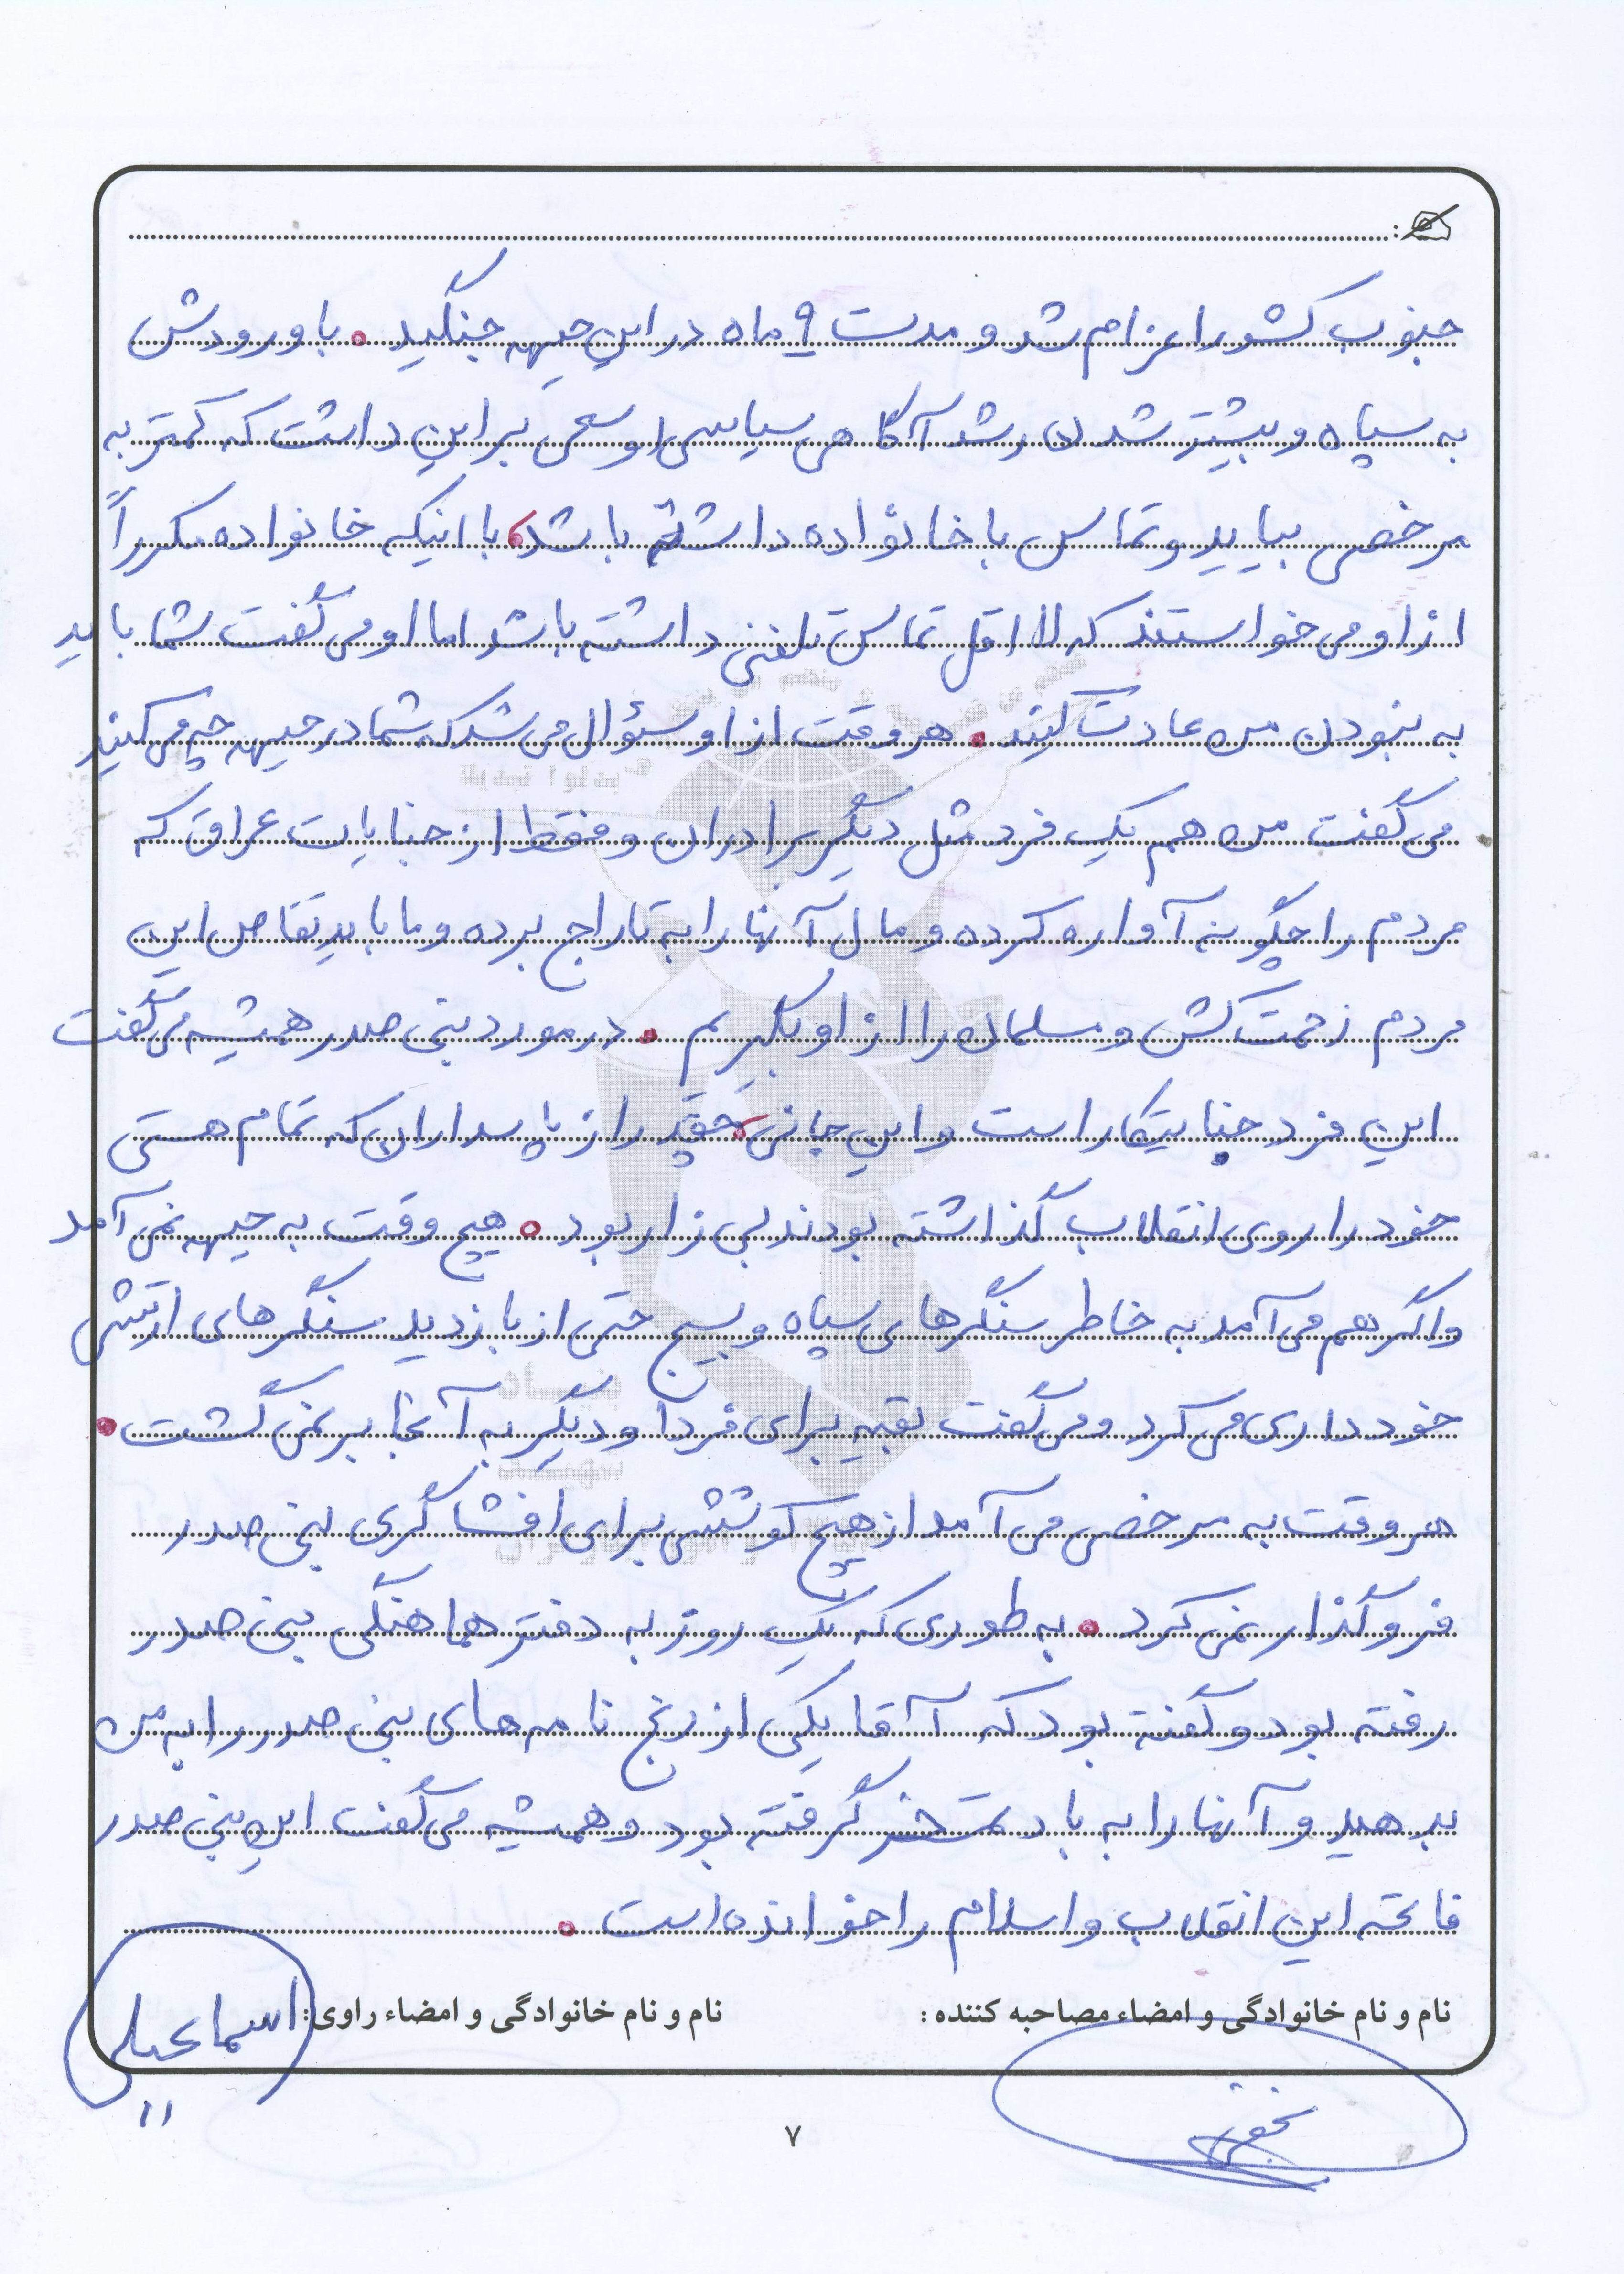 جنوب کشور اعزام شد و مدت ۹ ماه در این جبهه جنگید. با ورودش
به سپاه و بیشتر شدن رشد آگاهی سیاسی او سعی بر این داشت که کمتر به
مرخصی بیاید و تماس با خانواده داشته باشد، با اینکه خانواده مکرراً
از او می خواستند که لااقل تماس تلفنی داشته باشد اما او می گفت شما باید
به نبودن من عادت کنید. هر وقت از او سئوال می شد که شما در جبهه چه می کنید
می گفت من هم یک فرد مثل دیگر برادران و فقط از جنایات عراق که
مردم را چگونه آواره کرده و مال آنها را به تاراج برده و ما باید تقاص این
مردم زحمت کش و مسلمان را از او بگیریم. در مورد بنی صدر همیشه می گفت
این فرد جنایتکار است و این جانی، حقیر از پاسداران که تمام هستی
خود را روی انقلاب گذاشته بودند بی زار بود. هیچ وقت به جبهه نمی آمد
و اگر هم می آمد به خاطر سنگرهای سپاه و بسیج حتی از بازدید سنگرهای ارتشی
خودداری می کرد و می گفت بقیه برای فردا و دیگر به آنجا بر نمی گشت.
هر وقت به مرخصی می آمد از هیچ کوششی برای افشاگری بنی صدر
فروگذار نمی کرد. به طوری که یک روز به دفتر هماهنگی بنی صدر
رفته بود و گفته بود که آقا یکی از رنج نامه های بنی صدر را به من
بدهید و آنها را به باد تمسخر گرفته بود و همیشه می گفت این بنی صدر
فاتحه این انقلاب و اسلام را خوانده است.
نام و نام خانوادگی و امضاء مصاحبه کننده: نام و نام خانوادگی و امضاء راوی: اسماعیلی
۷